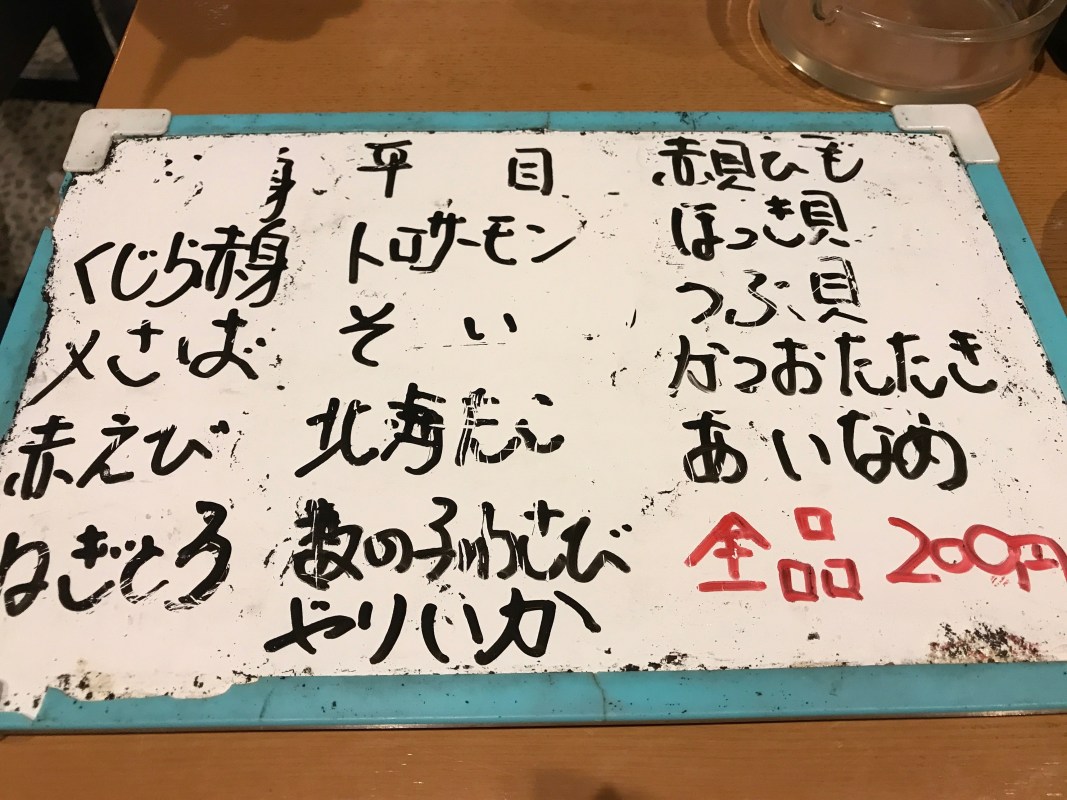 くじら赤身
〆さば
赤えび
ねぎとろ
平目
トロサーモン
そい
北海たこ
数の子わさび
やりいか
赤貝ひも
ほっき貝
つぶ貝
かつおたたき
あいなめ
全品200円